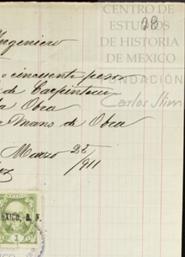 CENTRO DE
ESTUDIOS
DE HISTORIA
DE MEXICO
FUNDACIÓN
Carlos Slim
28
Ingeniero
cincuenta pesos
de Carpintero
la Obra
Mano de Obra
Marzo 25
/911
MEXICO, D. F.
1